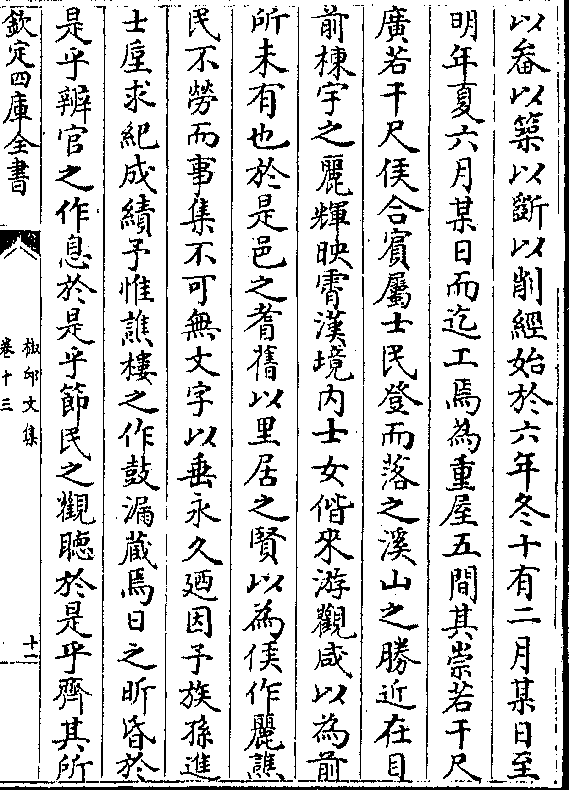 以畚以築以斵以削經始於六年冬十有二月某日至
明年夏六月某日而迄工焉為重屋五間其崇若干尺
廣若干尺侯合賓屬士民登而落之溪山之勝近在目
前棟宇之麗輝映霄漢境内士女偕來游觀咸以為前
所未有也於是邑之耆舊以里居之賢以為侯作麗譙
民不勞而事集不可無文字以垂永久廼因予族孫進
士垕求紀成績予惟譙樓之作鼓漏蔵焉日之昕昏於
是乎辨官之作息於是乎節民之觀聽於是乎齊其所
欽定四庫全書
椒邱文集
卷十三
十二